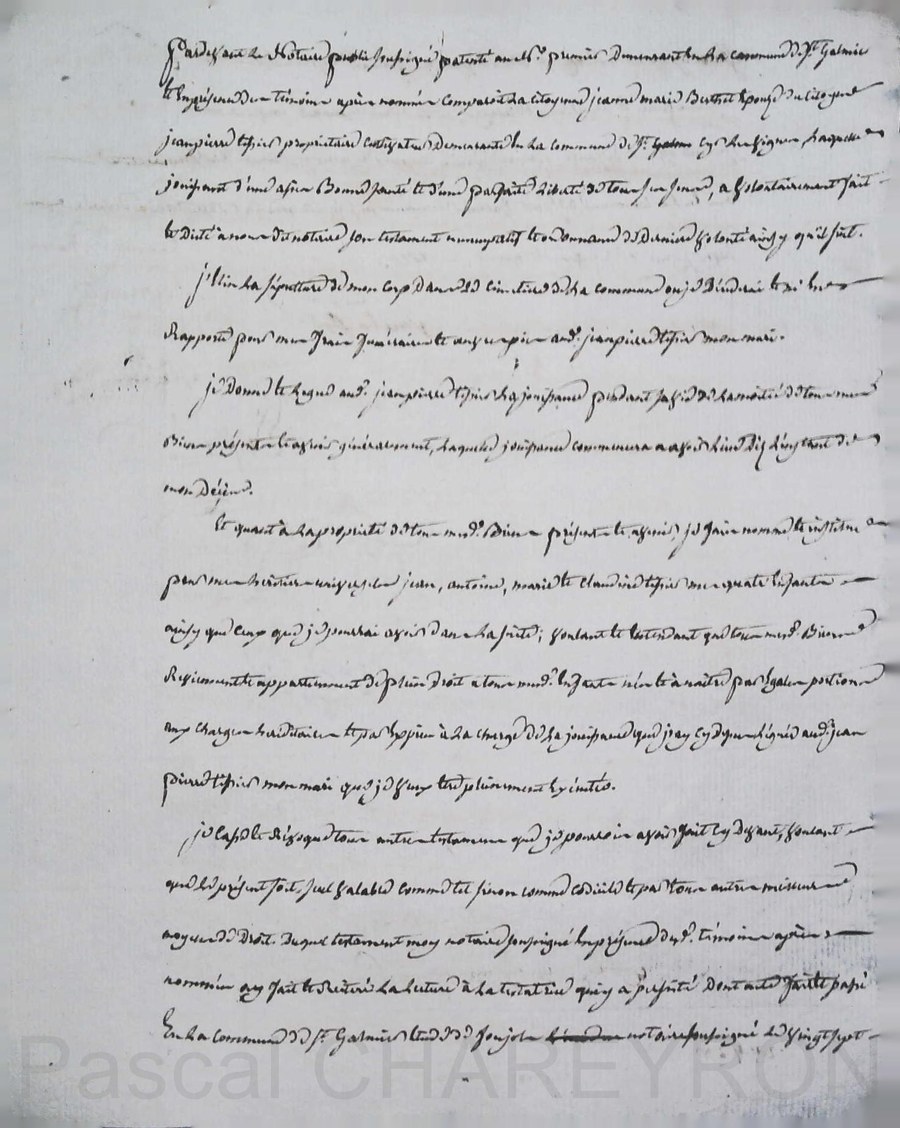 Pardevant Le Notaire public soussigné patenté au N°. premier Demeurant En La commune de St. Galmier
Et En présence des témoins après nommés comparoit La citoyenne jeanne marie Berthet Epouse du citoyen
jeanpierre tissier propriétaire cultivateur Demeurante En La commune de St. Laquelle
jouissant d'une assés Bonne santé et d'une parfaite Liberté de tous ses sens, a volontairement fait
Et Dicté à nous dit notaire son testament nuncupatif et ordonnance de Derniere volonté ainsy qu'il suit.
j'Elis La sépulture de mon corps Dans Le Cimetiere de La commune ou je Décéderai et m'En
Rapporte pour mes frais funéraires et œuvres pies aud. jeanpierre tissier mon mari.
je Donne et Legue aud. jeanpierre tissier La jouissance pendant sa vie de La moitié de tous mes
Biens présents et avenir généralement, Laquelle jouissance commencera a avoir Lieu Dès L'instant de
mon Décès.
Et quant à La propriété de tous mesd. Biens présents et avenir, je fais nomme et institue
pour mes héritiers universels jean, antoine, marie et Claudine tissier mes quatre Enfants
ainsy que ceux que je pourrai avoir Dans La suite; voulant et Entendant que tous mesd. Biens
Reviennent et appartiennent de plein Droit a tous mesd. Enfants nés et à naitre par Egales portions
aux charges héréditaires et par Exprès à La charge de La jouissance que j'ay cy devant Léguée aud. jean
pierre tissier mon mari que je veux Etre pleinement Exécutée.
je Casse et Révoque tous autres testaments que je pourrois avoir fait cy Devant, voulant
que Le présent soit seul valable comme tel sinon comme codicile et par tous autres meilleurs
moyens de Droit. Duquel testament moy notaire soussigné En présence desd. témoins après
nommés ay fait et Réitéré La Lecture à La testatrice qui y a persisté Dont acte fait et passé
En La commune de St. Galmier Etude de notaire soussigné Le vingt sept
Pascal CHAREYRON